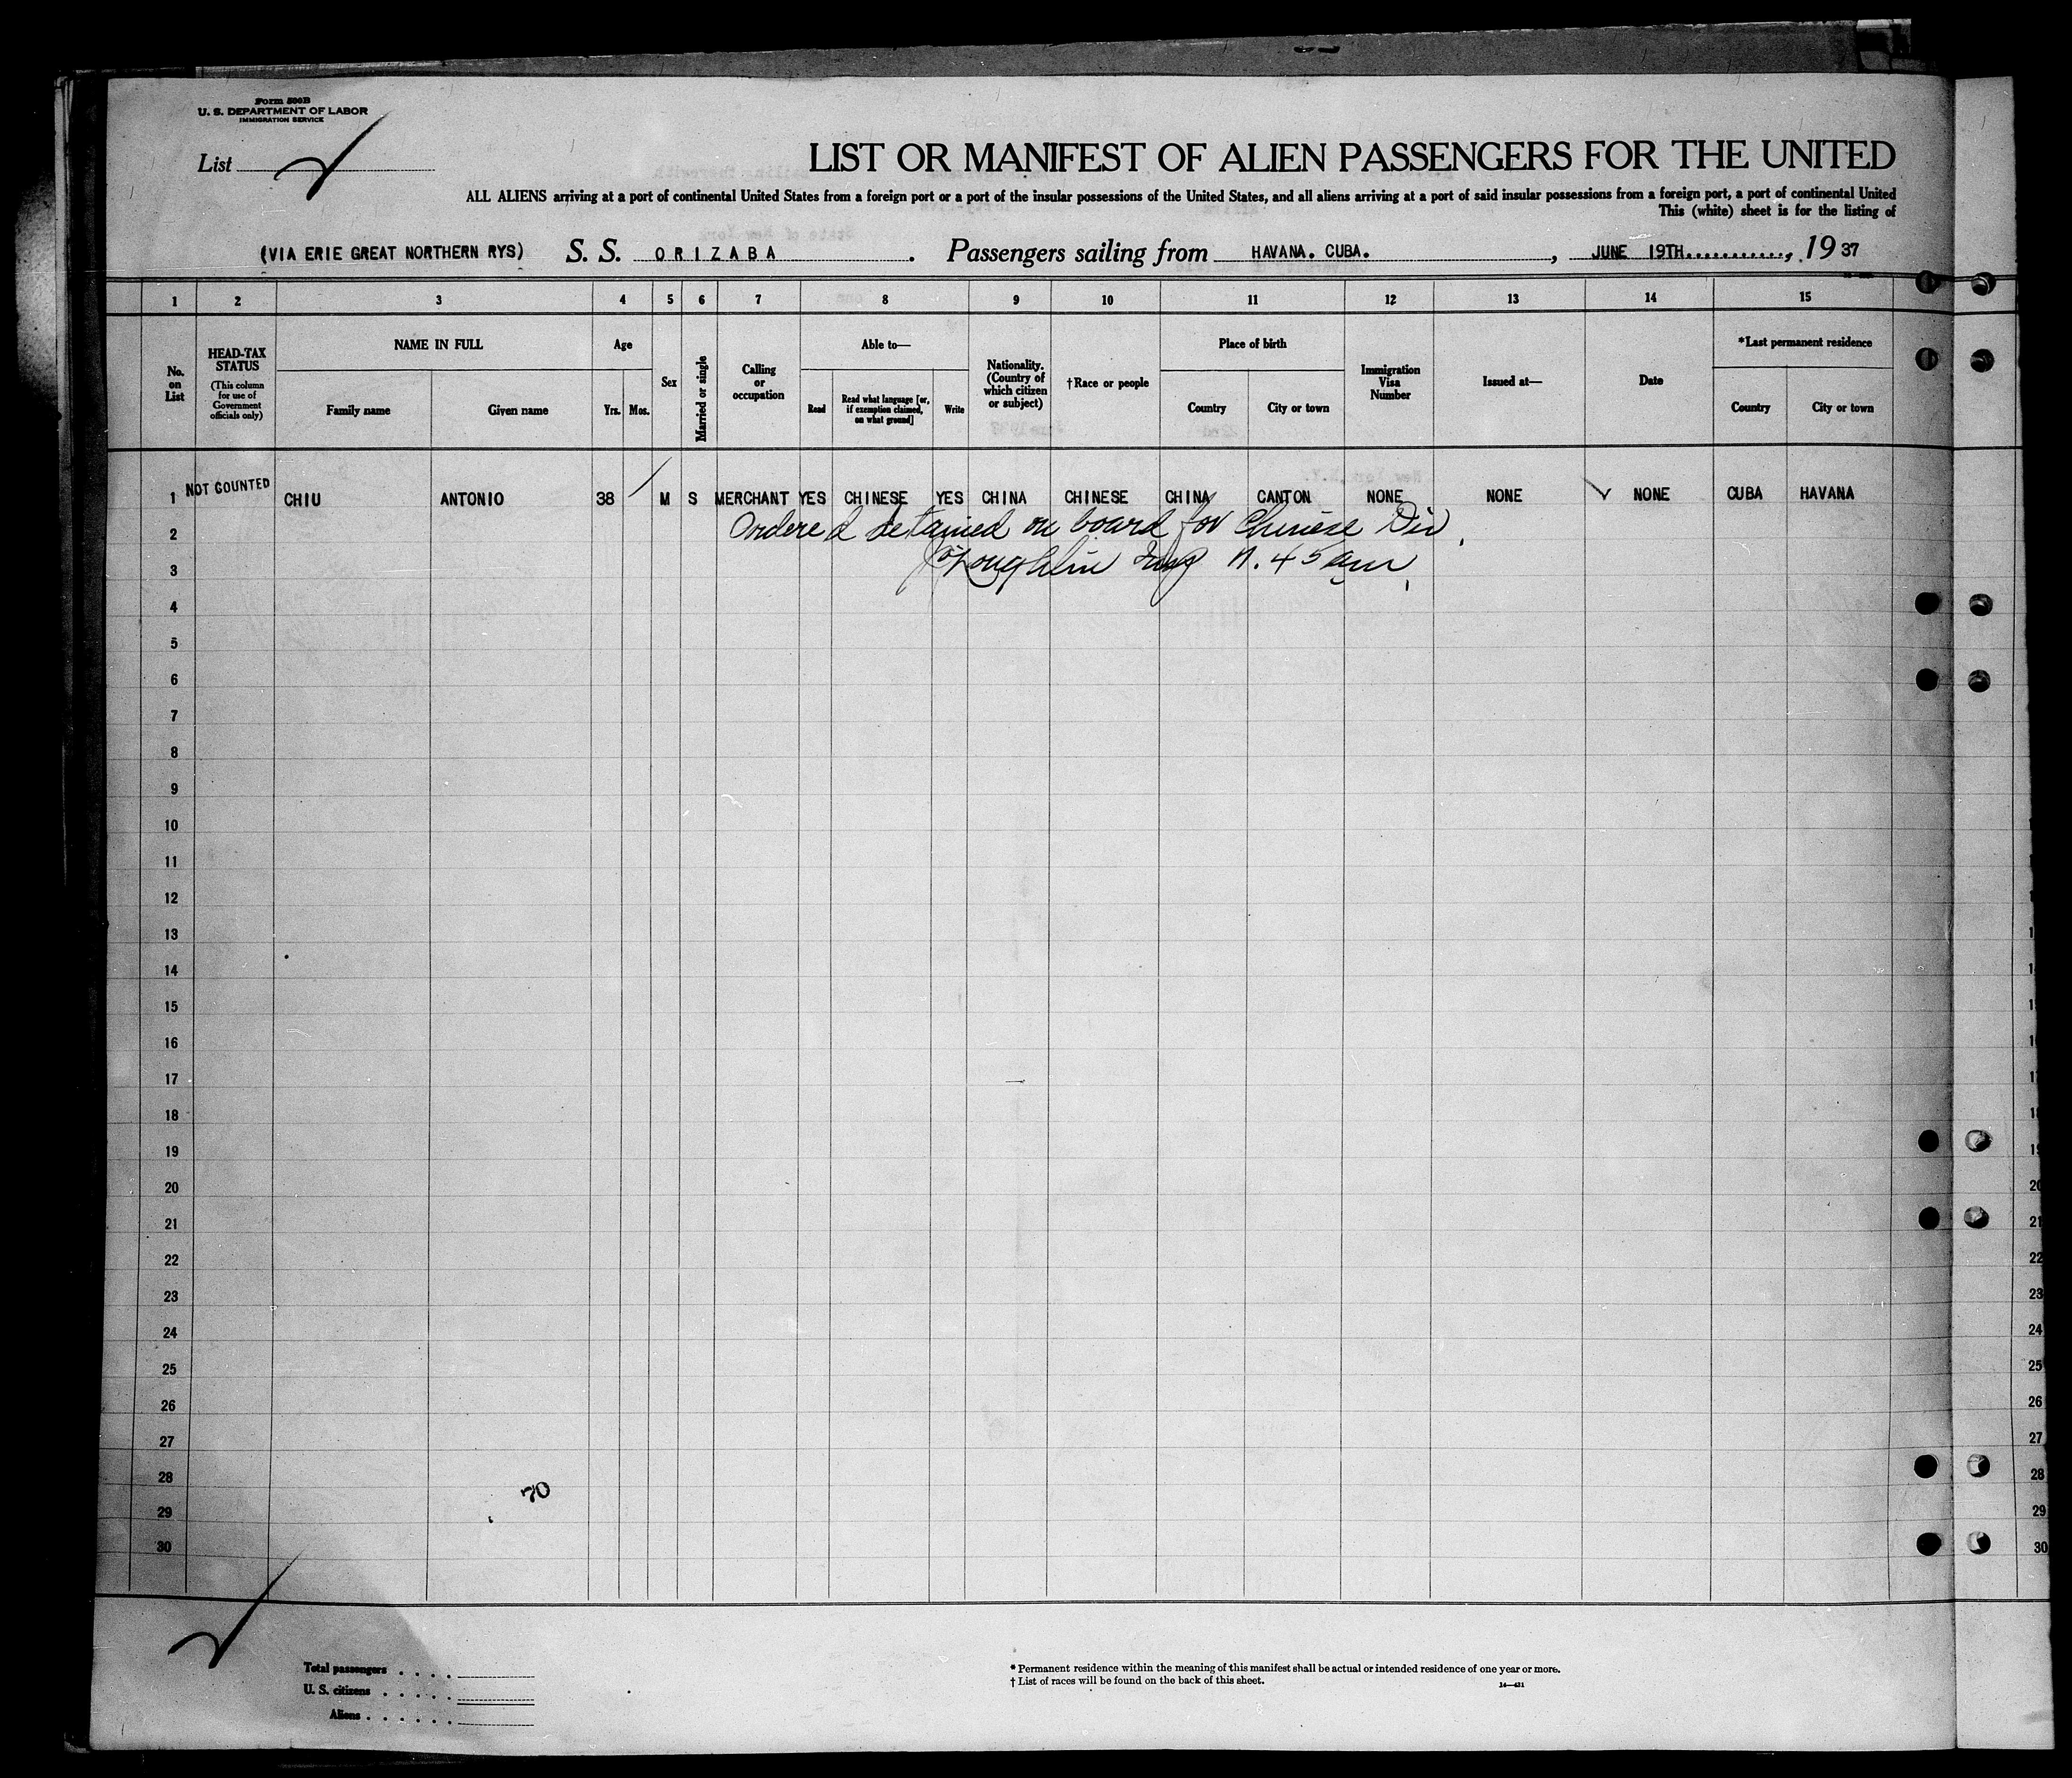 Form 500B
U. S. DEPARTMENT OF LABOR
IMMIGRATION SERVICE
List
LIST OR MANIFEST OF ALIEN PASSENGERS FOR THE UNITED
ALL ALIENS arriving at a port of continental United States from a foreign port or a port of the insular possessions of the United States, and all aliens arriving at a port of said insular possessions from a foreign port, a port of continental United
This (white) sheet is for the listing of
(VIA ERIE GREAT NORTHERN RYS) S. S. ORIZABA. Passengers sailing from HAVANA. CUBA., JUNE 19TH............, 1937
1 2 3 4 5 6 7 8 9 10 11 12 13 14 15
No. on List
HEAD-TAX STATUS
(This column for use of Government officials only)
NAME IN FULL
Family name
Given name
Age
Yrs.
Mos.
Sex
Married or single
Calling or occupation
Able to—
Read
Read what language [or, if exemption claimed, on what ground]
Write
Nationality. (Country of which citizen or subject)
†Race or people
Place of birth
Country
City or town
Immigration Visa Number
Issued at—
Date
*Last permanent residence
Country
City or town
1 NOT COUNTED CHIU ANTONIO 38 M S MERCHANT YES CHINESE YES CHINA CHINESE CHINA CANTON NONE NONE NONE CUBA HAVANA
2 Ordered detained on board for Chinese Div.
3 O'Loughlin Insp 11.45 am
4
5
6
7
8
9
10
11
12
13
14
15
16
17
18
19 19
20 20
21 21
22 22
23 23
24 24
25 25
26 26
27 27
28 28
70
29 29
30 30
Total passengers . . . .
U. S. citizens . . . . .
Aliens . . . . . .
* Permanent residence within the meaning of this manifest shall be actual or intended residence of one year or more.
† List of races will be found on the back of this sheet.
14—431